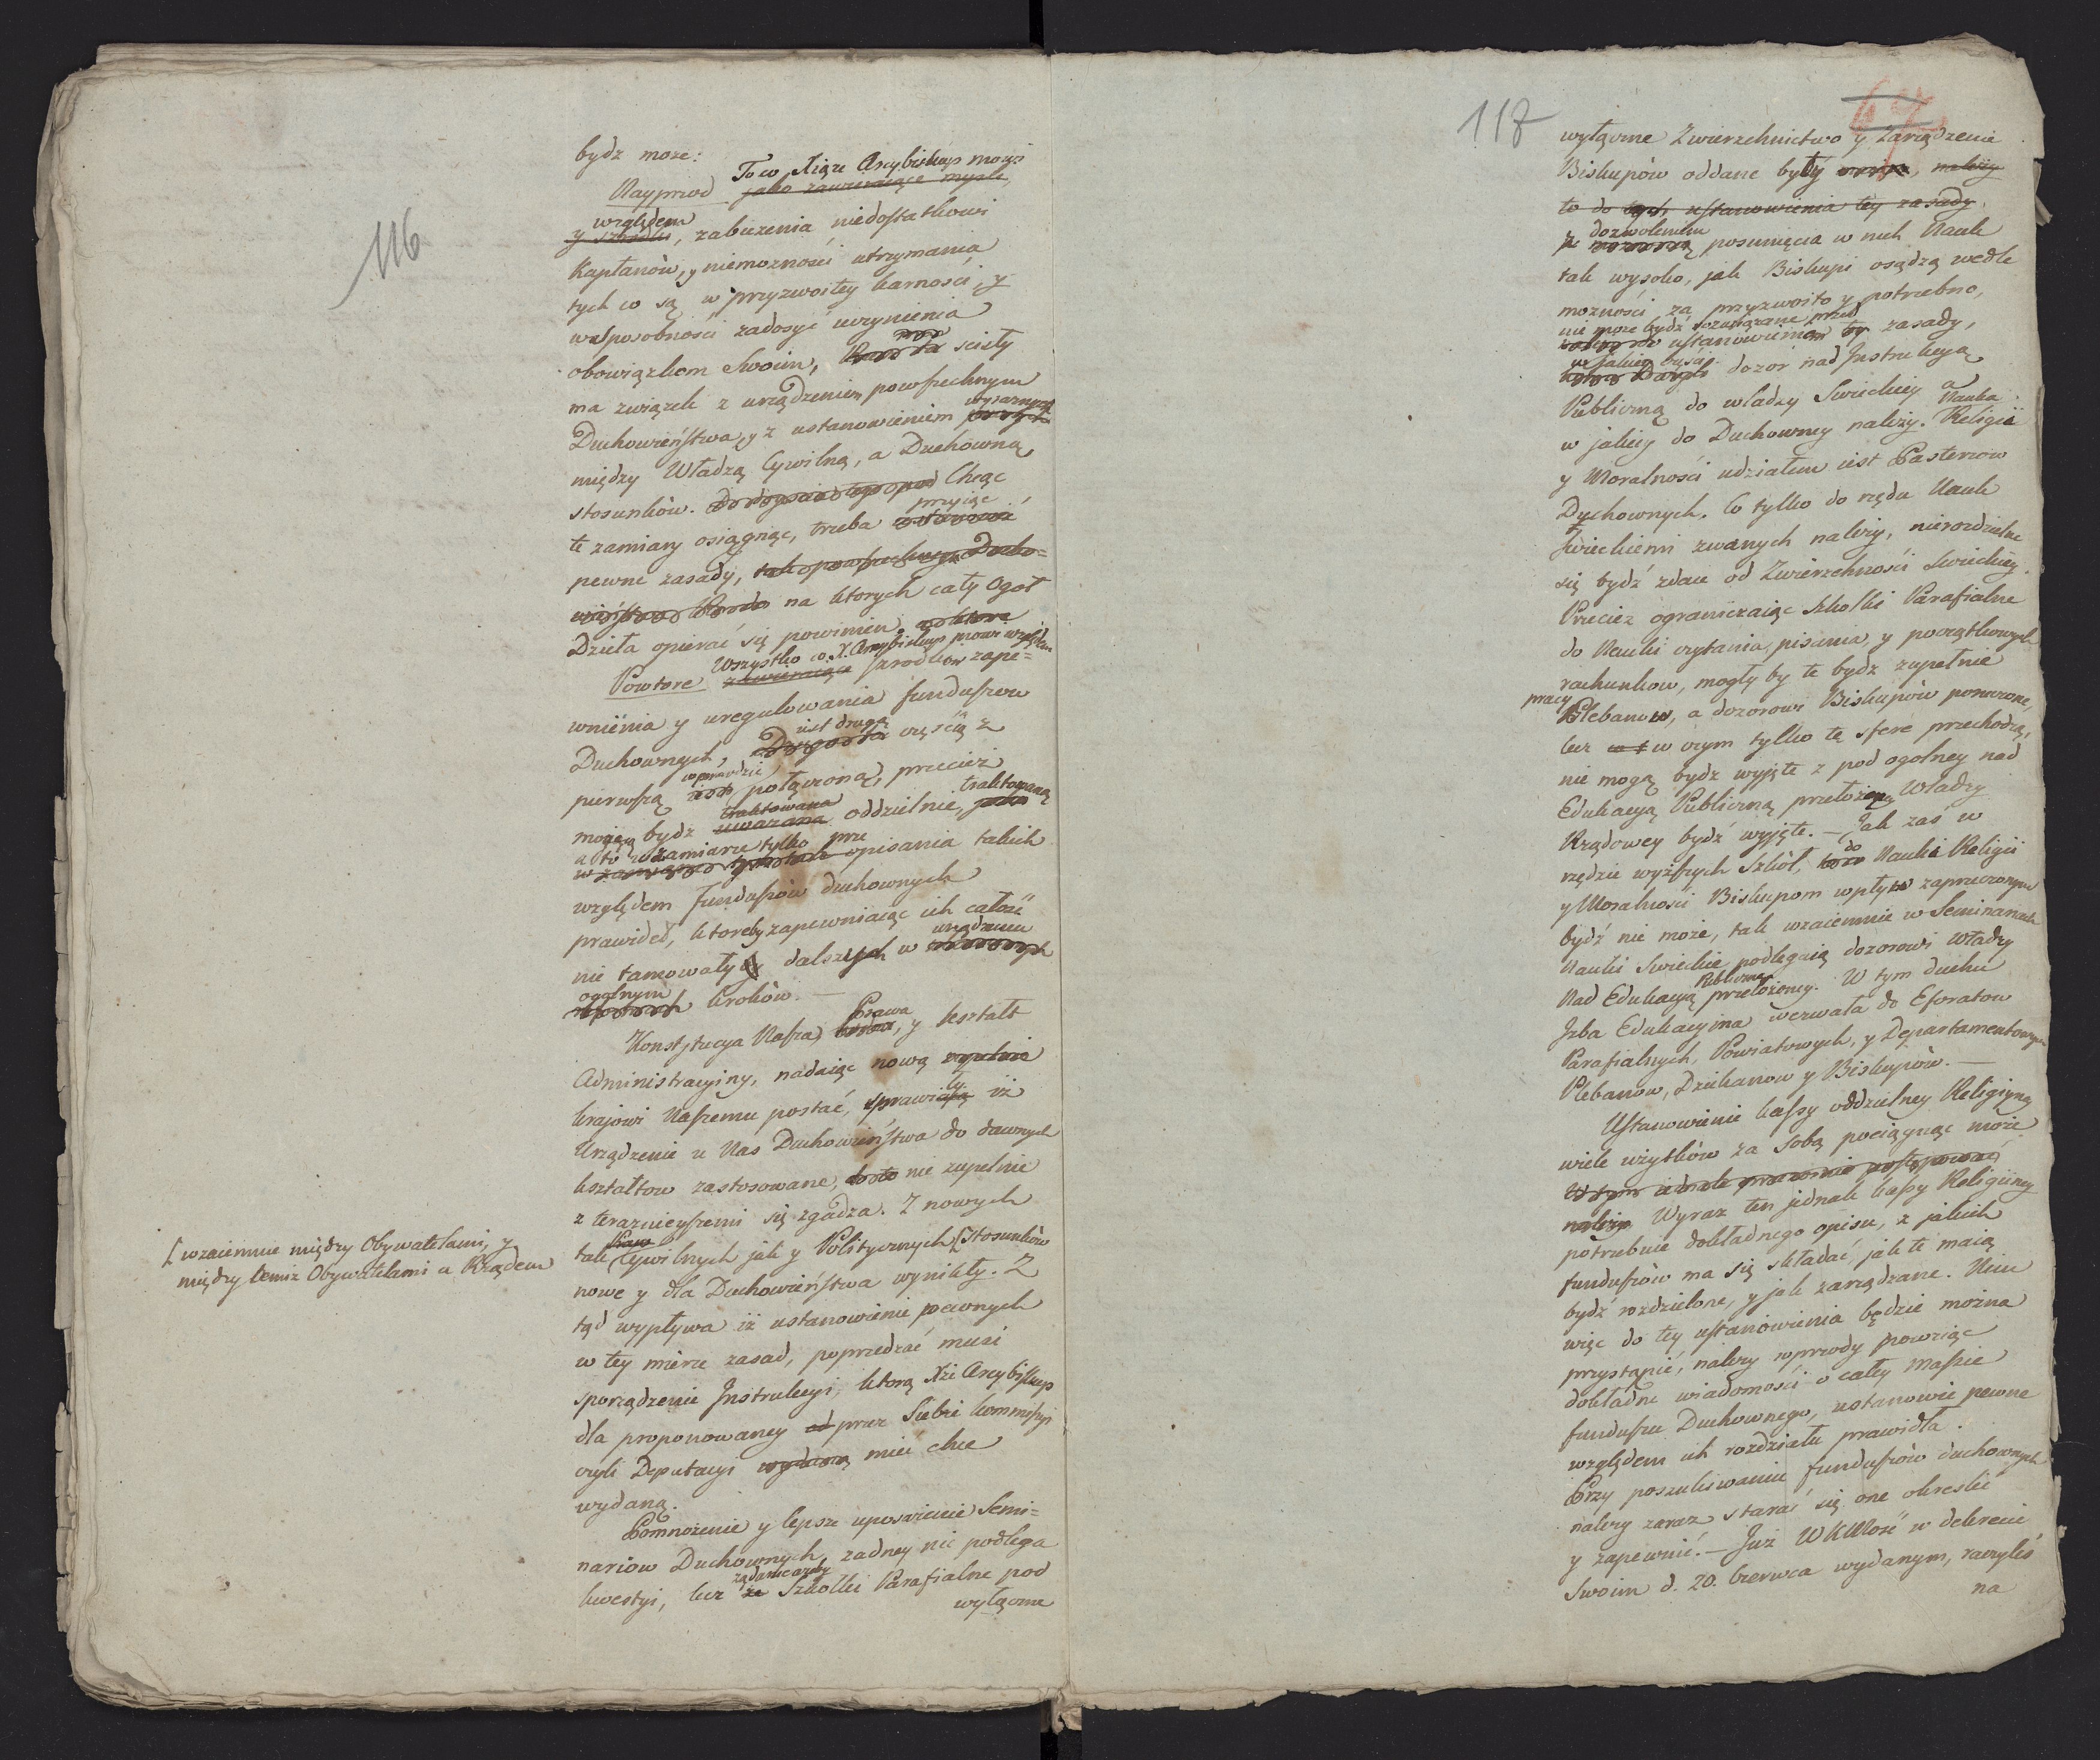 116
bydz moze:
To co Xiąze Arcybiskup mowi
Nayprzod jako zawieraiące mysle,
względem
y szkodli, zaburzenia niedostatkowi
Kapłanów, y niemozności utrzymania
tych co są w przyzwoitey karności, y
w sposobności zadosyć uczynienia
obowiązkom swoim, scisły
ma związek z urządzeniem powszechnym
wyraznych
Duchowieństwa, y z ustanowieniem
między Władzą Cywilną, a Duchowną
stosunków. Chcąc
przyiąc
te zamiary osiągnąc, trzeba ustanowić
pewne zasady, tak powszechnego Ducho=
wieństwa na ktorych cały Ogoł
Dzieła opierać się powinien,
Wszystko co X. Arcybiskup mowi względem
Powtore zawieraiące szrodków zape=
wnienia y uregulowania funduszow
iest drugą
Duchownych, częścią z
wprawdzie
pierwszą iest połączoną, przecież
traktowana traktowaną
mogącą bydz uwazana oddzielnie, jako
a to w zamiarze tylko prze
opisania takich
względem funduszów duchownych
prawideł, ktoreby zapewniaiąc ich całość
urządzeniu
nie tamowały dalszych w
ogolnym
kroków. —
Prawa
Konstytucya Nasza, y kształt
Administracyiny, nadaiąc nową zupełnie
ły
krajowi Naszemu postać, sprawiaią iż
Urządzenie u Nas Duchowieństwa do dawnych
kształtow zastosowane, nie zupełnie
z teraznieyszemi się zgadza. Z nowych
Praw
tak Cywilnych jak y Politycznych [Stosunków
[wzaiemnie między Obywatelami, y
między temiz Obywatelami a Rządem
nowe y dla Duchowieństwa wynikły. Z
tąd wypływa iż ustanowienie pewnych
w tey mierze zasad, poprzedzać musi
sporządzenie Instrukcyi, ktorą Xże Arcybiskup
dla proponowaney od przez Siebie kommissyi
czyli Deputacyi wydaną mieć chce
wydaną.
Pomnożenie y lepsze uposażenie Semi=
nariow Duchownych, zadney nie podlega
żądanie azeby
kwestyi, lecz ze Szkołki Parafialne pod
wyłączne
118
67
wyłączne Zwierzchnictwo y Zarządzenie
Biskupów oddane były, należy
to do tych ustanowienia tey zasady.
dozwoleniem
z posunięcia w nich Nauk
tak wysoko, jak Biskupi osądzą wedle
mozności za przyzwoito y potrzebno,
nie moze bydź rozwiązane przed
ustanowieniem tey zasady,
w jakiey bydź
dozor nad Instrukcyą
Publiczną do władzy Swieckiey a
Nauka
w jakiey do Duchowney należy. Religii
y Moralności udziałem iest Pasterzow
Duchownych. Co tylko do rzędu Nauk
Swieckiemi zwanych należy, nierozdzielne
się bydź zdaie od Zwierzchności Swieckiey.
Przecież ograniczaiąc Szkołki Parafialne
do Nauki czytania, pisania, y początkowych
rachunkow, mogły by te bydz zupełnie
pracy
Plebanow, a dozorowi Biskupów poruczone,
lecz w czym tylko tę sferę przechodzą,
nie mogą bydz wyjęte z pod ogolney nad
Edukacyą Publiczną przełozoney Władzy
Rządowey bydź wyjęte. — Jak zaś w
do
rzędzie wyższych Szkół, Nauki Religii
y Moralności Biskupom wpływ zaprzeczonym
bydź nie może, tak wzaiemnie w Seminariach
Nauki Swieckie podlegaią dozorowi Władzy
Publiczną
Nad Edukacyą przełozoney. W tym duchu
Izba Edukacyina wezwała do Eforatow
Parafialnych, Powiatowych, y Departamentowych
Plebanow, Dziekanow y Biskupòw. —
Ustanowienie kassy oddzielney Religiyney
wiele użytków za sobą pociągnąc może
W tym iednak postępować
należy. Wyraz ten jednak kassy Religiiney
potrzebuie dokładnego opisu, z jakich
funduszów ma się składać, jak te maią
bydź rozdzielone, y jak zarządzane. Nim
więc do tey ustanowienia będzie można
przystąpić, nalezy wprzody powziąc
dokładne wiadomości o całey massie
funduszu Duchownego, ustanowic pewne
względem ich rozdziału prawidła.
Przy poszukiwaniu funduszów duchownych
należy zaraz starać się one okreslić
y zapewnić. — Już WKMość w dekrecie
Swoim d. 20. Czerwca wydanym, raczyłeś
na